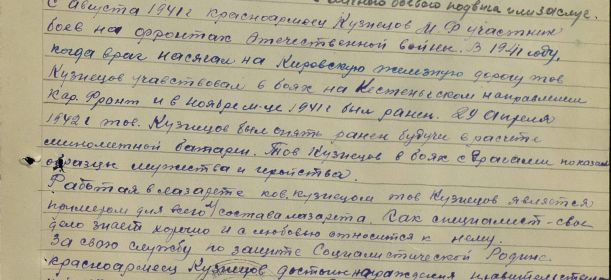 личного боевого подвига или заслуг.
С августа 1941 г красноармеец Кузнецов М. Ф участник
боев на фронтах Отечественной войны. В 1941 году,
когда враг насягал на Кировскую железную дорогу тов
Кузнецов учавствовал в боях на Кестеньгском направлении
Кар. Фронт и в ноябре м-це 1941 г был ранен. 29 апреля
1942 г тов. Кузнецов был опять ранен будучи в расчете
минометной батареи. Тов Кузнецов в боях с врагами показал
образцы мужества и геройства.
Работая в лазарете ков. кузнецом тов Кузнецов является
примером для всего л/состава лазарета. Как специалист - свое
дело знает хорошо и с любовью относится к нему.
За свою службу по защите Социалистической Родине
красноармеец Кузнецов достоин награждения правительствен